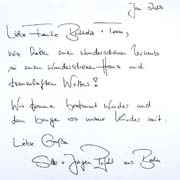 Jan 2013
Liebe Familie
wir hatten einen wunderschönen Urlaub
in einem wunderschönen Haus und
traumhaftem Wetter!
Wir kommen bestimmt wieder und
dann bringen wir unsere Kinder mit.
Liebe Grüße
Silke + Jürgen aus Berlin